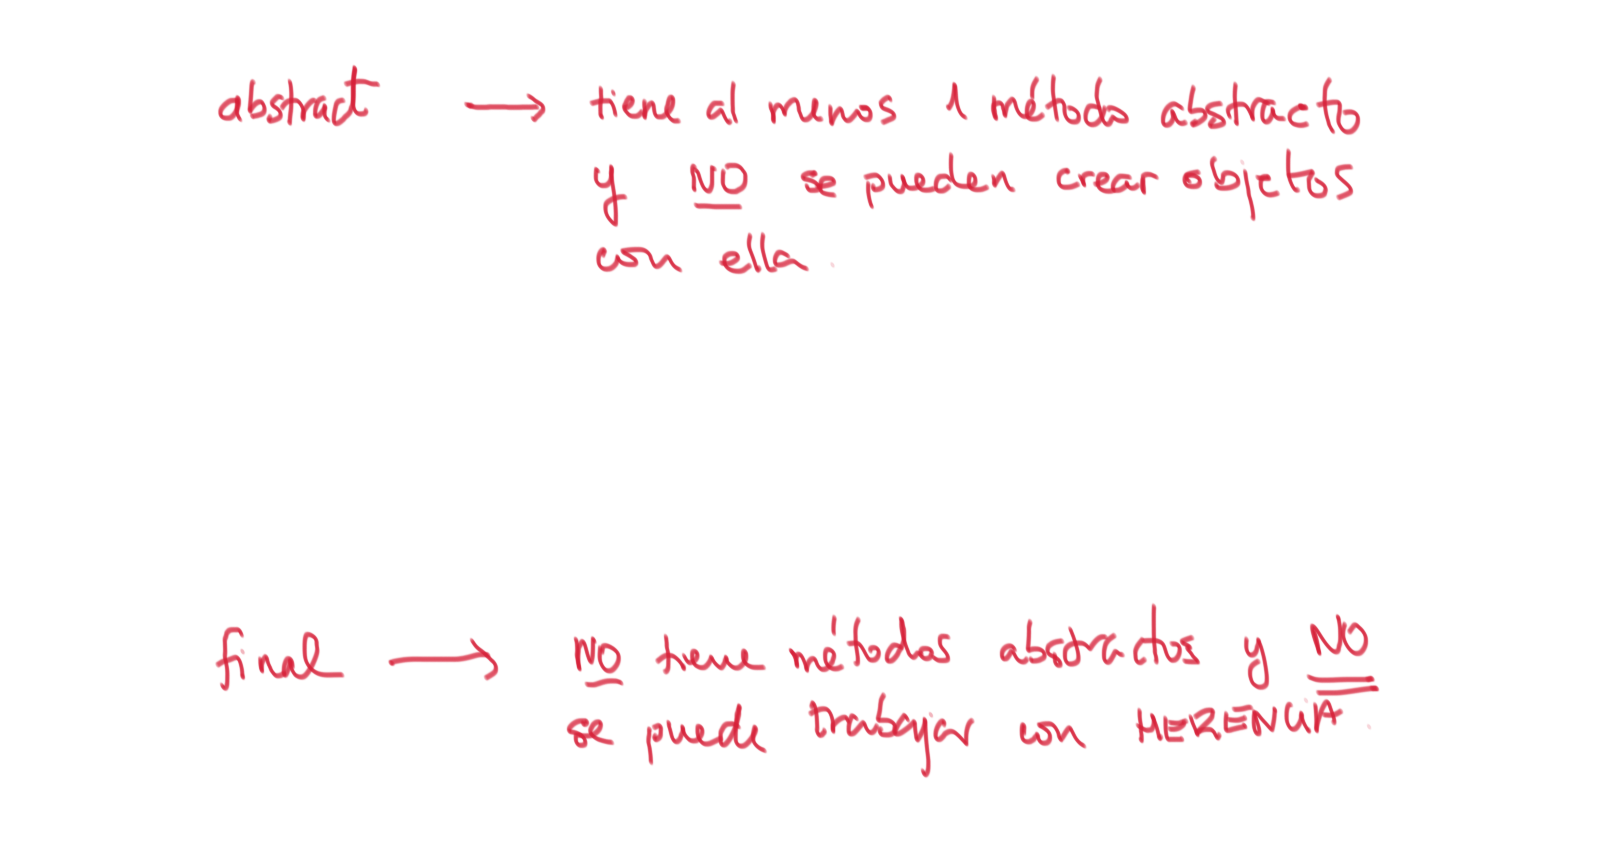 abstract → tiene al menos 1 método abstracto
y NO se pueden crear objetos
con ella.
final → NO tiene métodos abstractos y NO
se puede trabajar con HERENCIA.